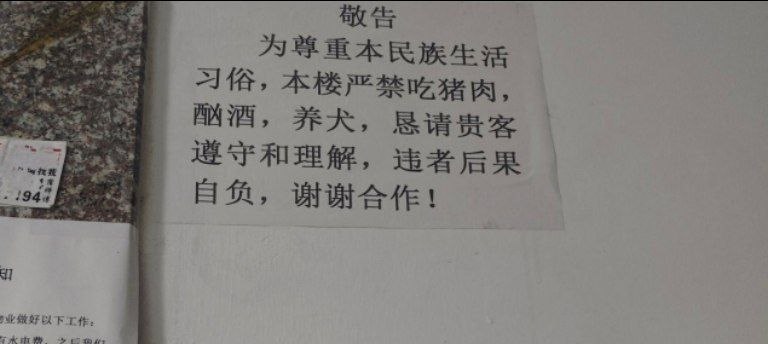 敬告
为尊重本民族生活
习俗，本楼严禁吃猪肉，
酗酒，养犬，恳请贵客
遵守和理解，违者后果
自负，谢谢合作！
194
知
业做好以下工作：
水电费，之后我们